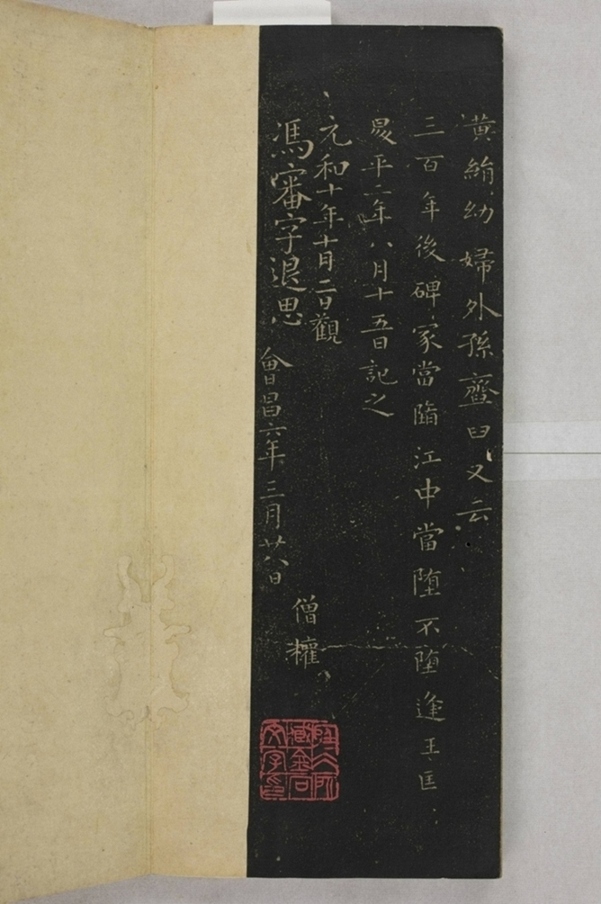 黃絹幼婦外孫齏臼又云
三百年後碑冢當墮江中當墮不墮逢王匡
昇平二年八月十五日記之
元和十年十月二日觀
馮審字退思
會昌六年三月廿八日
僧權